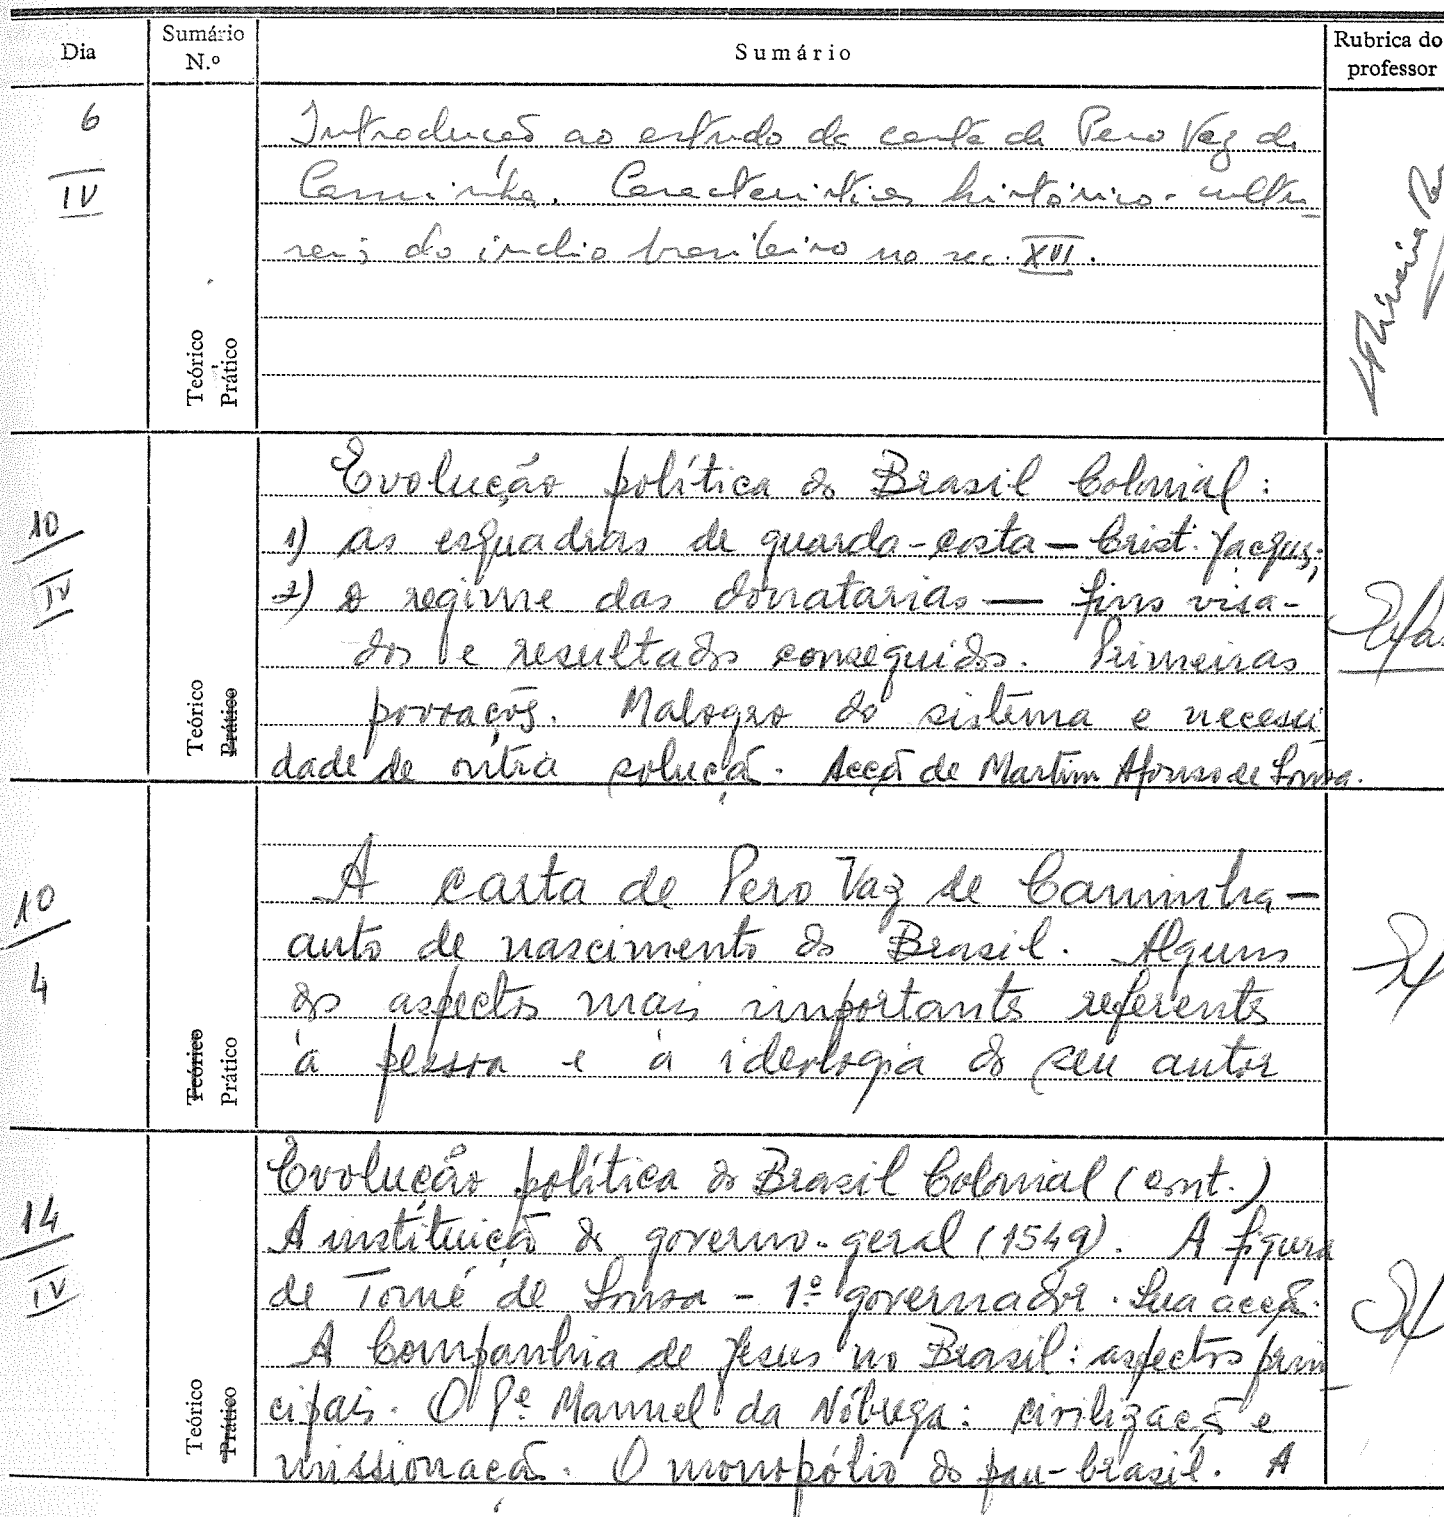 Dia
Sumário N.º
Sumário
Rubrica do professor
6
IV
Introdução ao estudo da carta de Pero Vaz de
Caminha. Características histórico-cultu-
rais do índio brasileiro no séc. XVI.
Teórico
Prático
10
IV
Evolução política do Brasil Colonial:
1) as esquadras de guarda-costa — Crist. Jacques;
2) o regime das donatarias — fins visa-
dos e resultados conseguidos. Primeiras
povoações. Malogro do sistema e necessi
dade de outra solução. Acção de Martim Afonso de Sousa.
Teórico
Prático
10
4
A carta de Pero Vaz de Caminha —
auto de nascimento do Brasil. Alguns
dos aspectos mais importantes referentes
à pessoa e à ideologia do seu autor
Teórico
Prático
14
IV
Evolução política do Brasil Colonial (cont.)
A instituição do governo-geral (1549). A figura
de Tomé de Sousa - 1º governador. Sua acção.
A Companhia de Jesus no Brasil: aspectos prin
cipais. O Pe Manuel da Nóbrega: civilização e
missionação. O monopólio do pau-brasil. A
Teórico
Prático